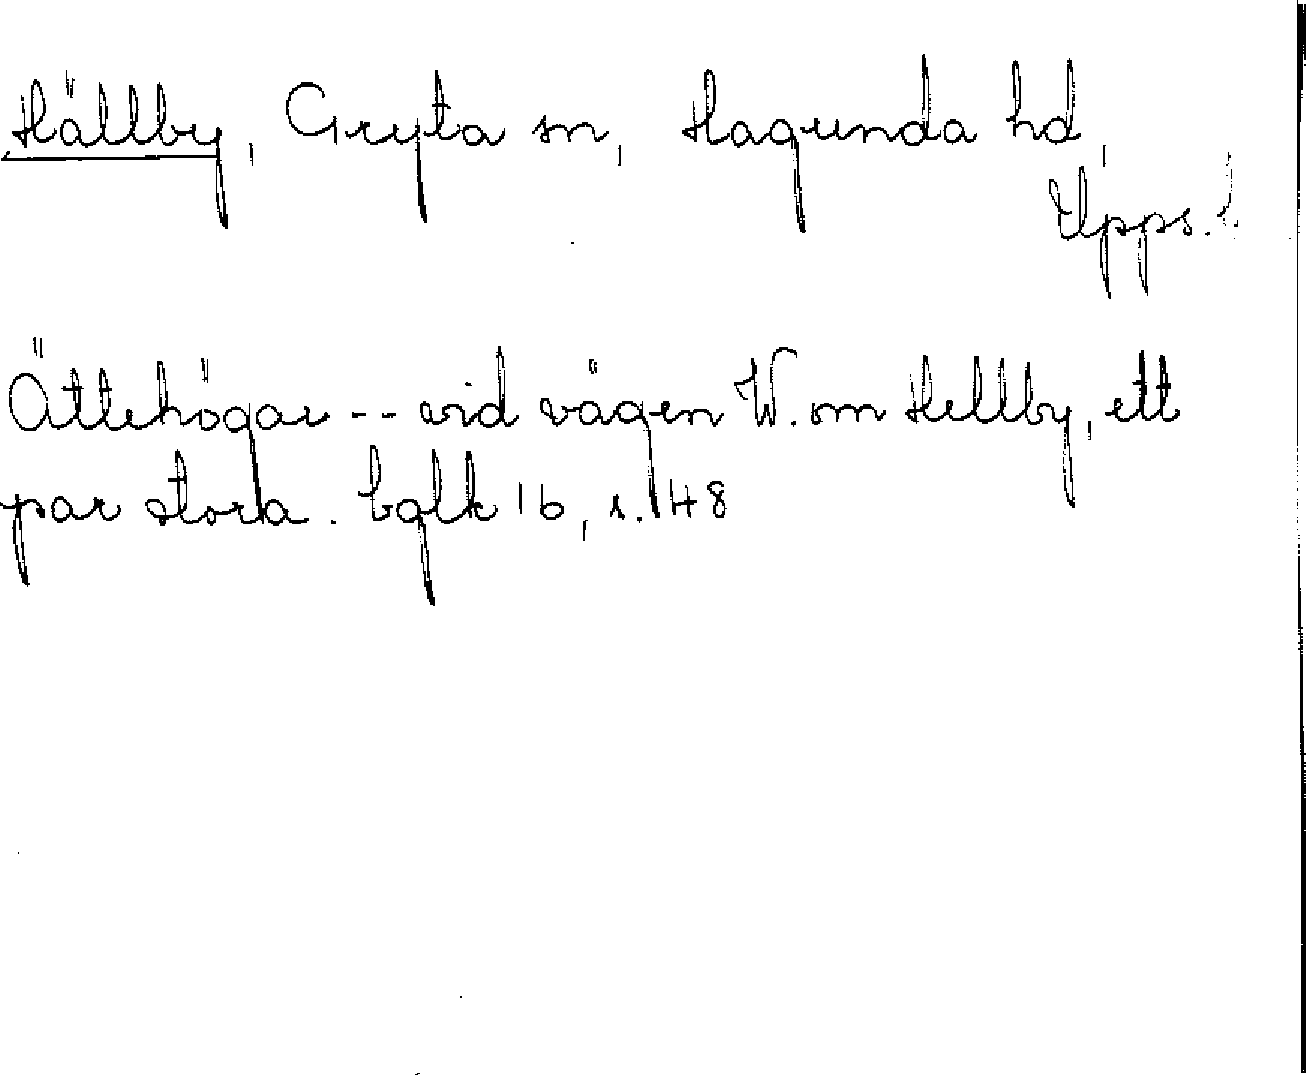 Hällby, Gryta sn, Hagunda hd,
Upps. l.
Ättehögar -- vid vägen W. om Hellby, ett
par stora. bglk 16, s. 148